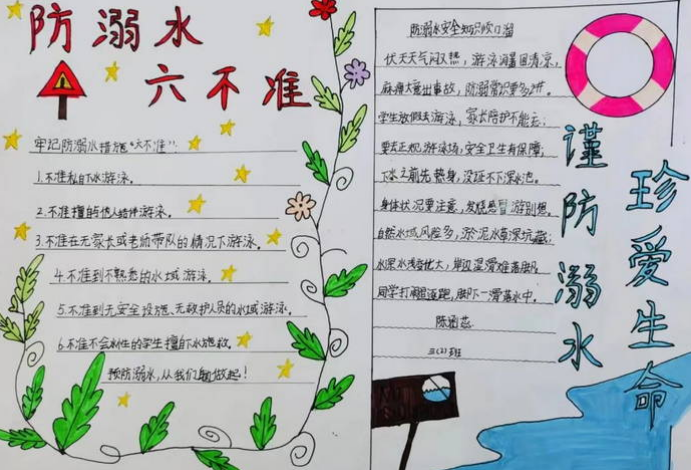 防溺水
六不准
牢记防溺水措施"六不准":
1.不准私自下水游泳。
2.不准擅自与他人结伴游泳。
3.不准在无家长或老师带队的情况下游泳。
4.不准到不熟悉的水域游泳。
5.不准到无安全设施、无救护人员的水域游泳。
6.不准不会水性的学生擅自下水施救。
预防溺水,从我们做起!
防溺水安全知识顺口溜
伏天天气闷又热,游泳消暑图清凉,
麻痹大意出事故,防溺常识要多讲。
学生放假去游泳,家长陪护不能忘;
要去正规游泳场,安全卫生有保障;
下水之前先热身,没证不下深水池。
身体状况要注意,发烧感冒游别想。
自然水域风险多,淤泥水草深坑藏;
水深水浅
同学打闹追跑,脚下一滑落水中。
陈函芯
三(2)班
谨防溺水
珍爱生命